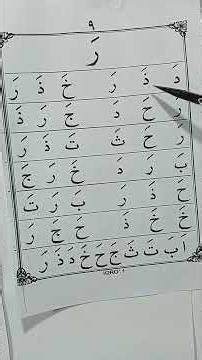 ٩
رَ
دَ ذَ رَ خَ ذَ رَ
رَ حَ دَ جَ رَ ذَ
رَ حَ ثَ تَ ذَ رَ
بَ رَ دَ خَ رَ جَ
حَ ذَ رَ بَ رَ تَ
خَ حَ ذَ حَ جَ رَ
اَ بَ تَ ثَ جَ حَ خَ دَ ذَ رَ
IQRO' 1